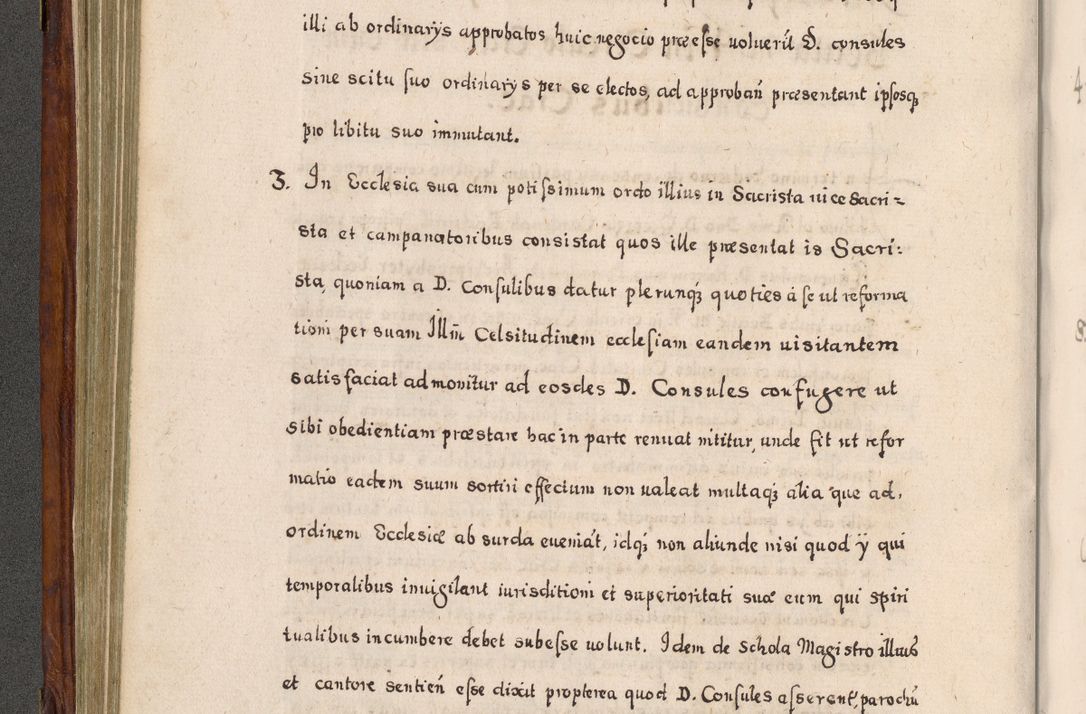 illi ab ordinarys approbatos huic negocio præesse uoluerūt D. consules
sine scitu suo ordinarys per se electos, ad approbañ præsentant ipsosq₃
pro libitu suo immutant.
3. In Ecclesia sua cum potissimum ordo illius in Sacrista uice Sacri=
sta et campanatoribus consistat quos ille præsentat is Sacri:
sta, quoniam a D. Consulibus datur plerunq₃ quoties à se ut reforma
tioni per suam Illm̄ Celsitudinem ecclesiam eandem uisitantem
satisfaciat admonitur ad eosdes D. Consules confugere ut
sibi obedientiam præstare hac in parte renuat nititur, unde fit ut refor
matio eadem suum sortiri effectum non ualeat multaq₃ alia que ad,
ordinem Ecclesiæ absurda eueniāt, idq₃ non aliunde nisi quod ÿ qui
temporalibus inuigilant iurisditioni et superioritati suæ eum qui spiri
tualibus incumbere debet subesse uolunt. Idem de Schola Magistro illius
et cantore sentień esse dixit propterea quod D. Consules asserent, parochū